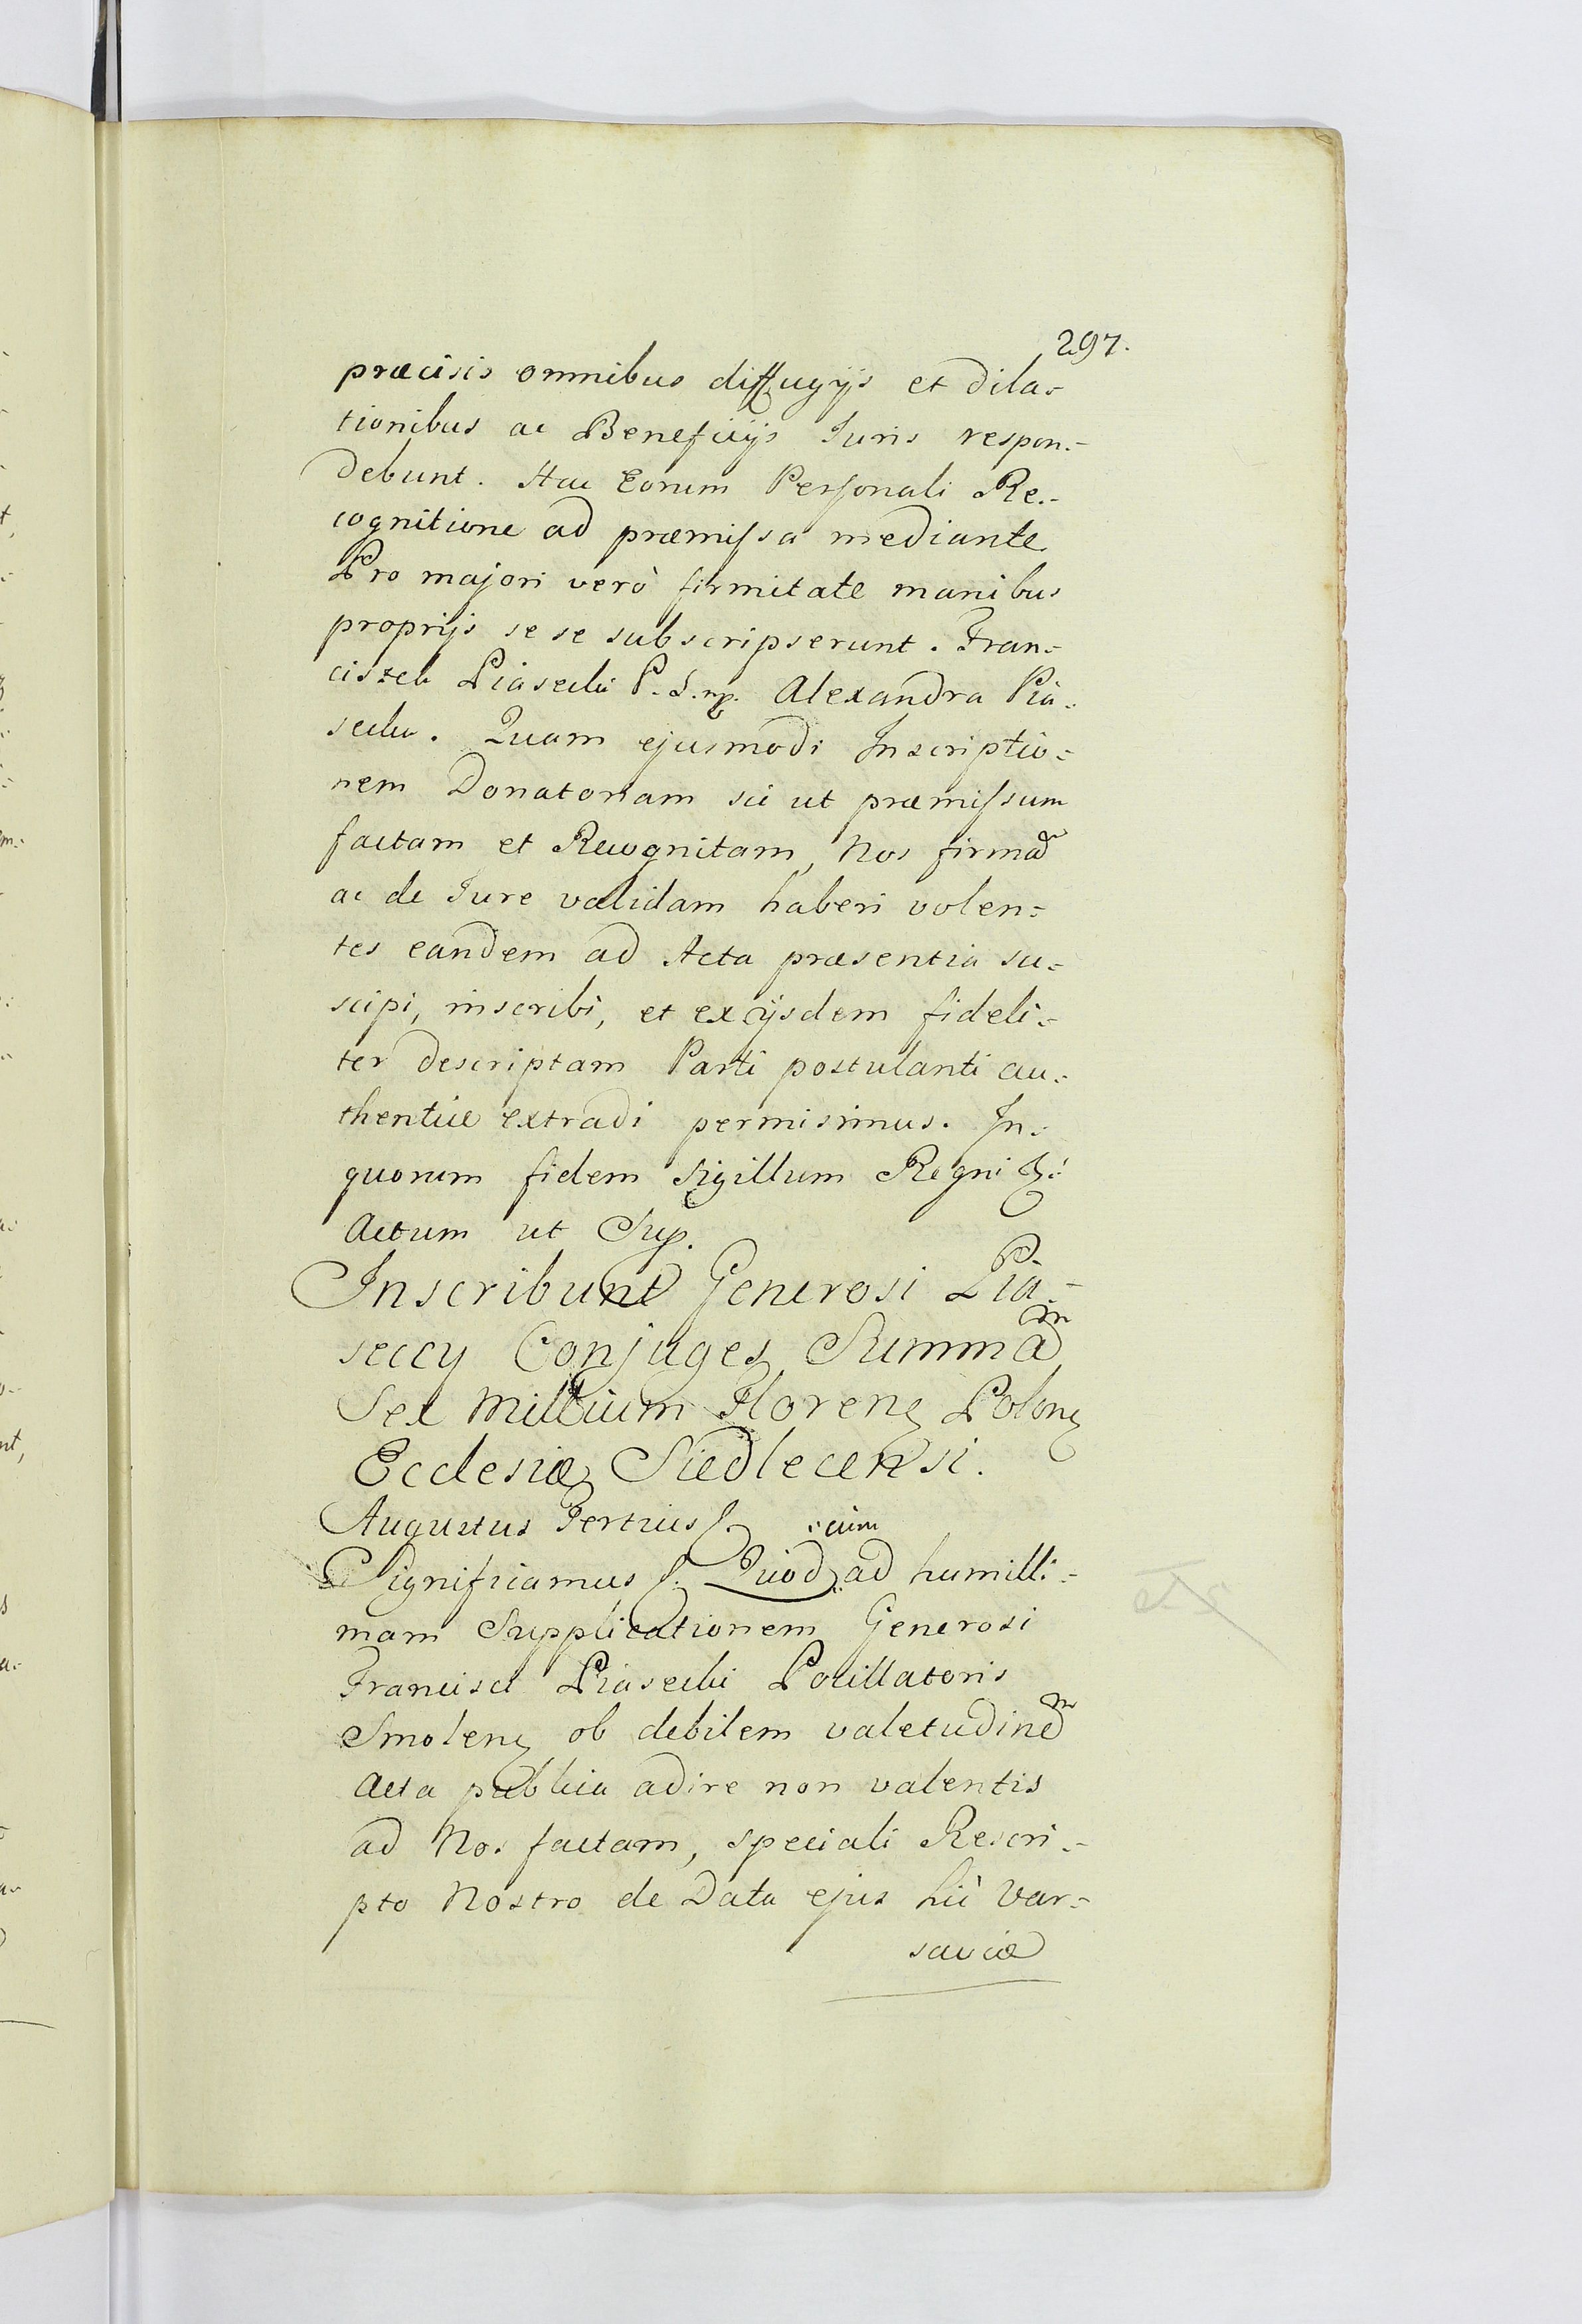 297.
præcisis omnibus diffugijs et dila-
tionibus ac Beneficijs Juris respon-
debunt. Hac Eorum Personali Re-
cognitione ad præmissa mediante.
Pro majori verò firmitate manibus
proprijs se se subscripserunt. Fran-
ciszek Piasecki P. S. mp. Alexandra Pia-
secka. Quam ejusmodi Inscriptio-
nem Donatoriam sic ut præmissum
factam et Recognitam, Nos firmam
ac de Jure validam haberi volen-
tes eandem ad Acta præsentia su-
scipi, inscribi, et ex ijsdem fideli-
ter descriptam Parti postulanti au-
thentice extradi permisimus. In
quorum fidem Sigillum Regni &:
Actum ut Sup.
Inscribunt Generosi Pia-
seccy Conjuges Summam
Sex Millium Floren Polon
Ecclesiæ Siedlecensi.
Augustus Tertius &.
cum
Significamus &. Quod ad humilli-
mam Supplicationem Generosi
Francisci Piasecki Pocillatoris
Smolen ob debilem valetudinem
Acta publica adire non valentis
ad Nos factam, speciali Rescri-
pto Nostro de Data ejus hic Var-
saviæ